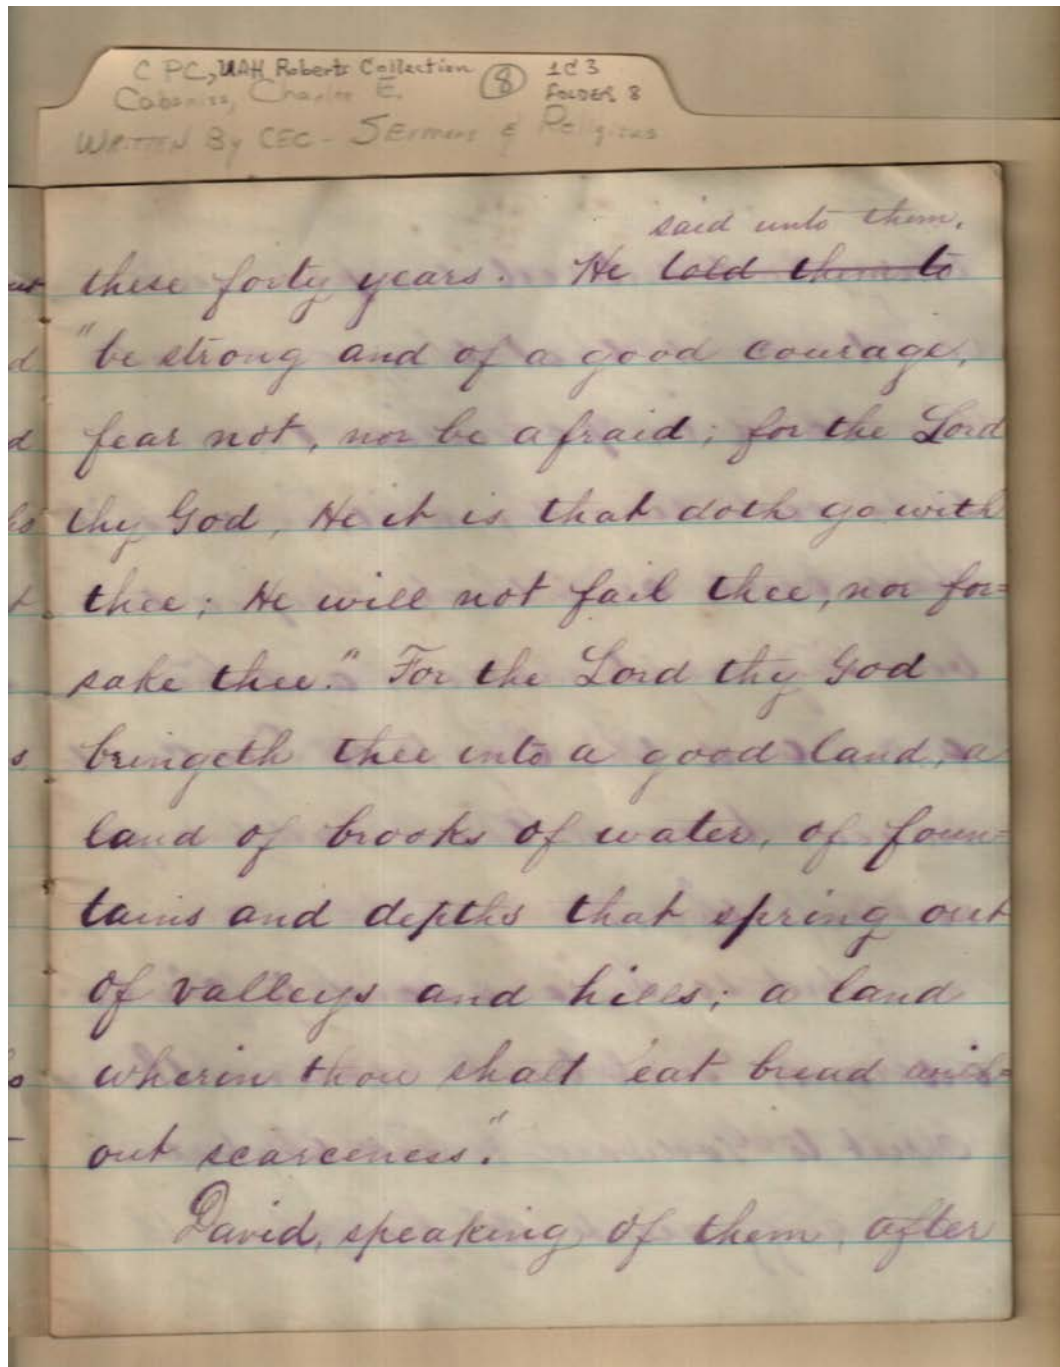 C PC, UAH Roberts Collection 8 1C3
Cabaniss, Charles E. FOLDER 8
WRITTEN By CEC - SERMONS & Religious
said unto them,
these forty years. He told them to
"be strong and of a good courage,
fear not, nor be afraid; for the Lord
thy God, He it is that doth go with
thee; He will not fail thee, nor for=
sake thee." For the Lord thy God
bringeth thee into a good land, a
land of brooks of water, of foun=
tains and depths that spring out
of valleys and hills; a land
wherin thou shalt eat bread with=
out scarceness."
David, speaking of them, after